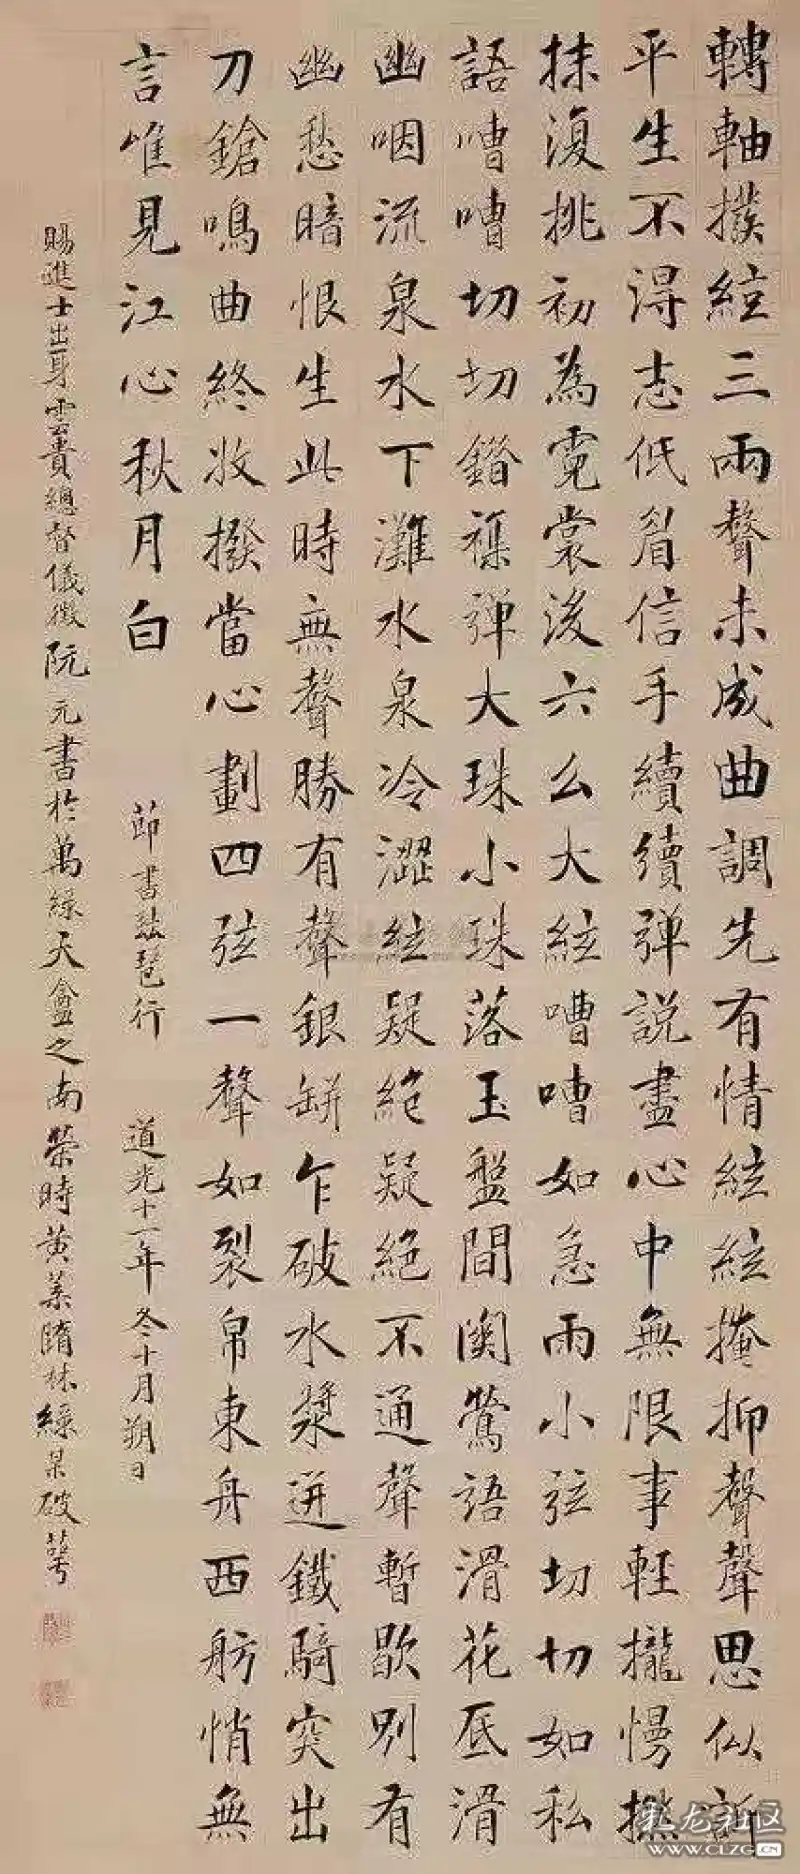 轉軸撲絃三兩聲未成曲調先有情絃絃掩抑聲聲思似訴
平生不得志低眉信手續續弹說盡心中無限事輕攏慢撚
抹復挑初為霓裳後六么大絃嘈嘈如急雨小弦切切如私
語嘈嘈切切錯雜弹大珠小珠落玉盤間関鶯語滑花底滑
幽咽流泉水下灘水泉冷澀絃疑絕疑絕不通聲暫歇別有
幽愁暗恨生此時無聲勝有聲銀缾乍破水漿迸鐵騎突出
刀鎗鳴曲終收撥當心劃四弦一聲如裂帛東舟西舫悄無
言唯見江心秋月白
節書琵琶行 道光十一年冬十月朔日
賜進士出身雲貴總督儀徵阮元書於萬綠天龕之南榮時黄葉林綠破萼
龙社区
CLZG.CN